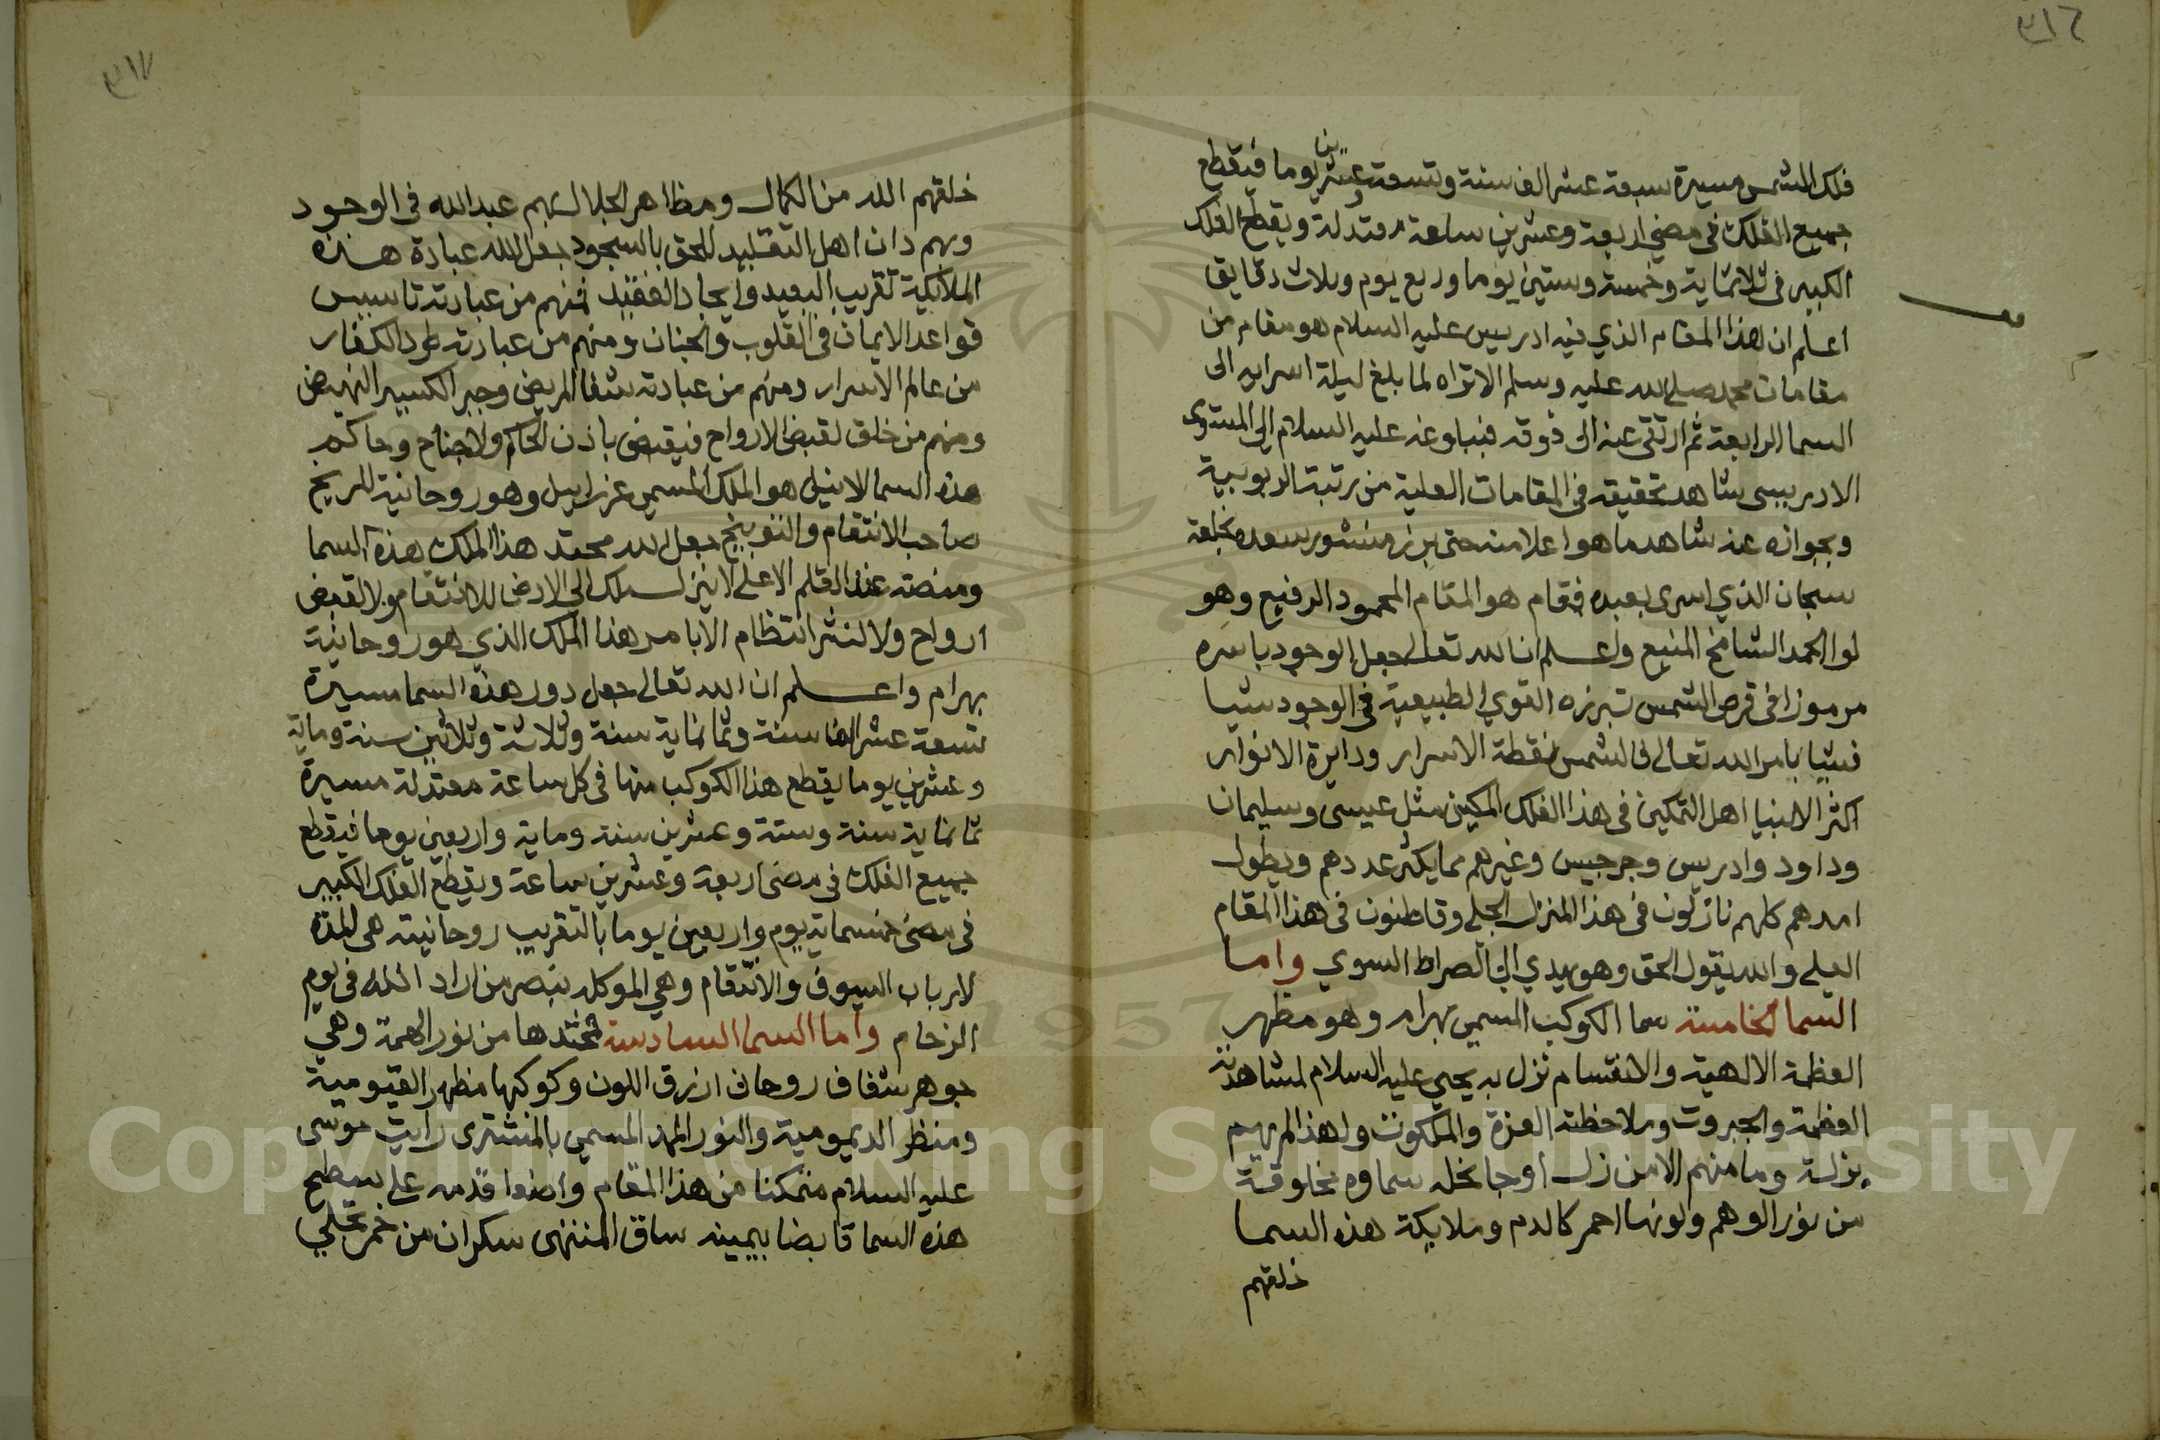 ٣١٦
فلك الشمس مسيرة سبعة عشر الف سنة وتسعة وعشرين يوما فيقطع
جميع الفلك في مضي اربعة وعشرين ساعة معتدلة ويقطع الفلك
الكبير في ثلاثماية وخمسة وستين يوما وربع يوم وثلاث دقايق
اعلم ان هذا المقام الذي فيه ادريس عليه السلام هو مقام من
مقامات محمد صلى الله عليه وسلم الا تراه لما بلغ ليلة اسرايه الى
السما الرابعة ثم ارتقى عنه الى فوقه فبلوغه عليه السلام الى المستوى
الادريسى شاهد تحقيقه في المقامات العلية من رتبة الربوبية
وبجوازه عنه شاهد ما هو اعلا منه حتى برز منشور سعده بخلعة
سبحان الذي اسرى بعبده فقام هو المقام المحمود الرفيع وهو
لوا الحمد الشامخ المنيع واعلم ان الله تعالى جعل الوجود باسره
مرموزا في قرص الشمس تبرزه القوي الطبيعية في الوجود شيا
فشيا بامر الله تعالى فالشمس نقطة الاسرار ودايرة الانوار
اكثر الانبيا اهل التمكين في هذا الفلك المكين مثل عيسى وسليمان
وداود وادريس وجرجيس وغيرهم مما يكثر عددهم ويطول
امدهم كلهم نازلون في هذا المنزل الجلي وقاطنون في هذا المقام
العلي والله يقول الحق وهو يهدي الى الصراط السوي واما
السما الخامسة سما الكوكب المسمى بهرام وهو مظهر
العظمة الالهية والانتقام نزل به يحيى عليه السلام لمشاهدته
العظمة والجبروت وملاحظته العزة والملكوت ولهذا لم يهم
بزلة وما منهم الا من زل او جا بخلة سماوه مخلوقة
من نور الوهم ولونها احمر كالدم وملايكة هذه السما
خلقهم
٣١٧
خلقهم الله من الكمال ومظاهر الجلال بهم عبد الله في الوجود
وبهم دان اهل التقليد للحق بالسجود جعل الله عبادة هذه
الملايكة تقريب البعيد وايجاد الفقيد فمنهم من عبادته تاسيس
قواعد الايمان في القلوب والجنان ومنهم من عبادته طرد الكفار
من عالم الاسرار ومنهم من عبادته شفا المريض وجبر الكسير المهيض
ومنهم من خلق لقبض الارواح فيقبض باذن الحاكم ولا جناح وحاكم
هذه السما الاثيل هو الملك المسمى عزرائيل وهو روحانية المريخ
صاحب الانتقام والتوبيخ جعل الله محتد هذا الملك هذه السما
ومنصته عند القلم الاعلى لا ينزل ملك الى الارض للانتقام ولا لقبض
ارواح ولا لنشر انتظام الا بامر هذا الملك الذي هو روحانية
بهرام واعلم ان الله تعالى جعل دور هذه السما مسيرة
تسعة عشر الف سنة وثمانماية سنة وثلاثة وثلاثين سنة وماية
وعشرين يوما يقطع هذا الكوكب منها في كل ساعة معتدلة مسيرة
ثمانماية سنة وستة وعشرين سنة وماية واربعين يوما فيقطع
جميع الفلك في مضى اربعة وعشرين ساعة ويقطع الفلك الكبير
في مضى خمسماية يوم واربعين يوما بالتقريب روحانيته هي الممدة
لارباب السيوف والانتقام وهي الموكله بنصر من اراد الله في يوم
الزحام واما السما السادسة فمحتدها من نور الهمة وهي
جوهر شفاف روحاني ازرق اللون وكوكبها مظهر القيومية
ومنظر الديمومية والنور الممد المسمى بالمشتري رايت موسى
عليه السلام متمكنا من هذا المقام واضعا قدمه على سطح
هذه السما قابضا بيمينه ساق المنتهى سكران من خمر تجلي
Copyright © King Saud University
1957